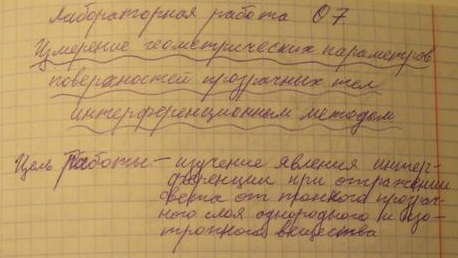 Лабораторная работа О7
Измерение геометрических параметров
поверхностей прозрачных тел
интерференционным методом
Цель Работы - изучение явления интер-
ференции при отражении
света от тонкого прозрач-
ного слоя однородного и изо-
тропного вещества